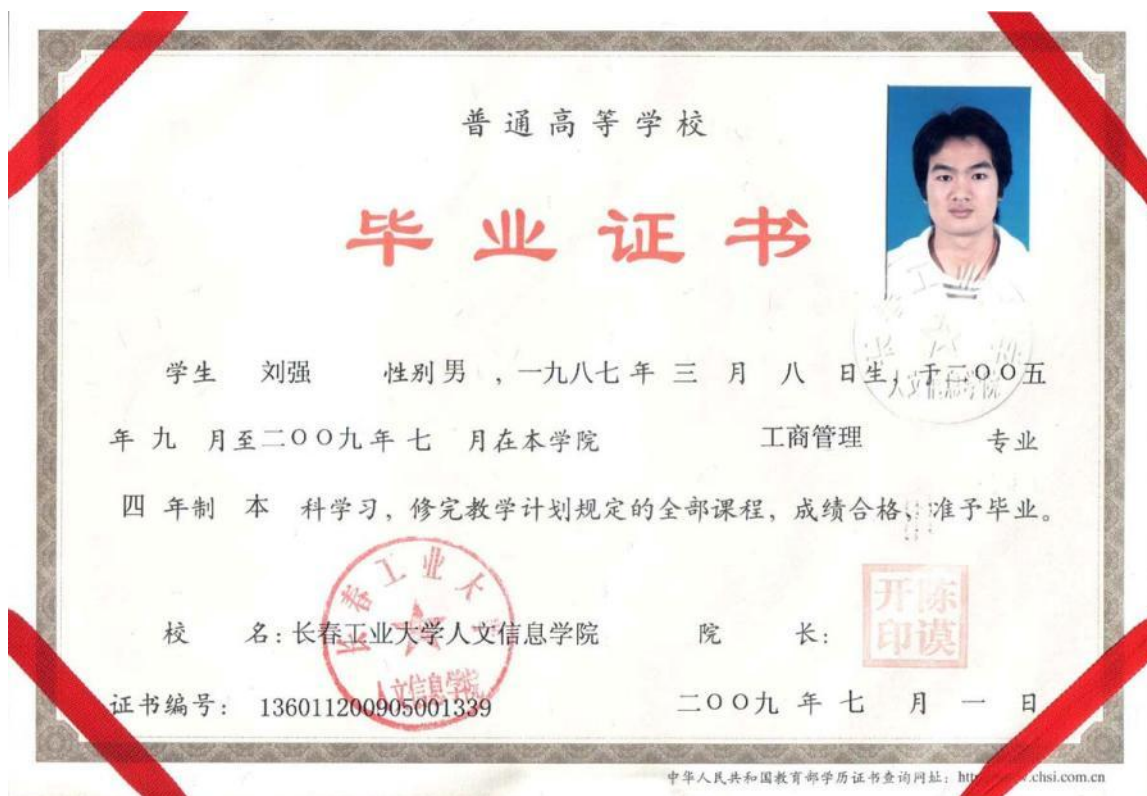 普通高等学校
毕业证书
学生 刘强 性别 男 ，一九八七 年 三 月 八 日生，于二〇〇五
年 九 月至二〇〇九 年 七 月在本学院 工商管理 专业
四 年制 本 科学习，修完教学计划规定的全部课程，成绩合格，准予毕业。
长春工业大学
人文信息学院
校 名：长春工业大学人文信息学院 院 长：
陈谟开印
证书编号： 136011200905001339 二〇〇九 年 七 月 一 日
中华人民共和国教育部学历证书查询网址：htt .chsi.com.cn
工业
人文信息学院